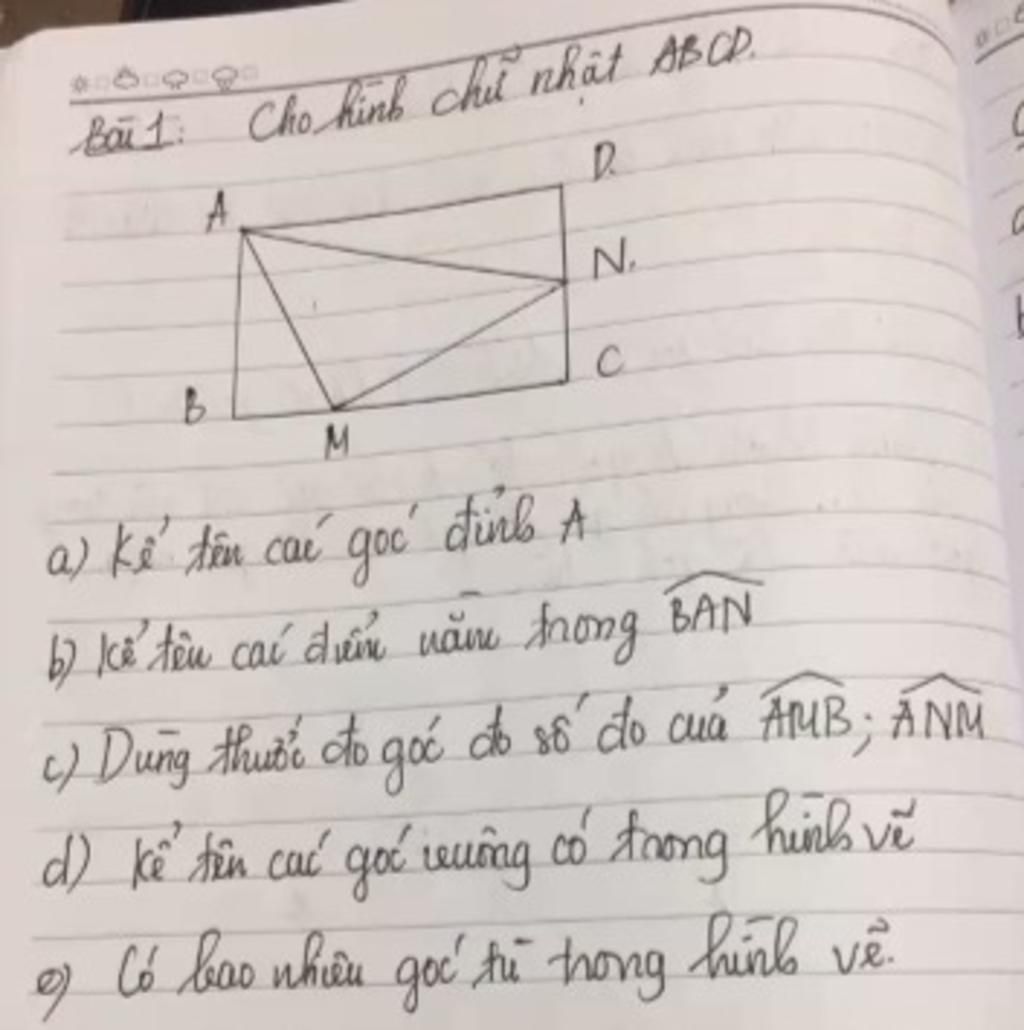 Bài 1: Cho hình chữ nhật ABCD.
A
D.
N.
C
B
M
a) Kể tên các góc đỉnh A
b) Kể tên các điểm nằm trong BAN
c) Dùng thước đo góc đo số đo của AMB; ANM
d) Kể tên các góc vuông có trong hình vẽ
e) Có bao nhiêu góc tù trong hình vẽ.